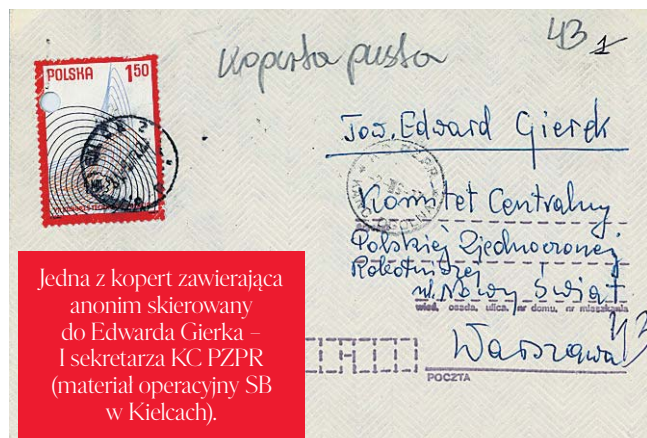 43 1
Koperta pusta
POLSKA 150
Tow. Edward Gierek
PZPR
Komitet Centralny
Polskiej Zjednoczonej
Robotniczej
ul. Nowy Świat
wieś, osada, ulica, nr domu, nr mieszkania
Warszawa
POCZTA
Jedna z kopert zawierająca
anonim skierowany
do Edwarda Gierka –
I sekretarza KC PZPR
(materiał operacyjny SB
w Kielcach).